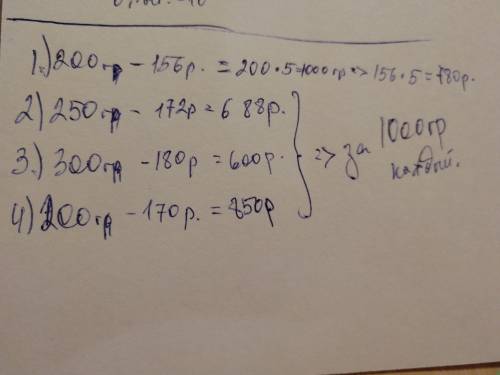 1.) 200гр - 156р. = 200 · 5=1000гр => 156 · 5 = 780р.
2) 250гр - 172р = 688р.
3.) 300гр - 180р = 600р.
4) 200гр - 170р. = 850р
=> за 1000гр
каждый.